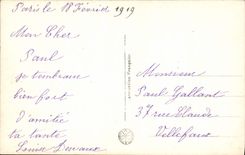 Paris le 18 Février 1919
Mon Cher
Paul
je t'embrasse
bien fort
d'amitié
ta tante
Louise
Monsieur
Paul Gallant
37 rue Claude
Vellefaux